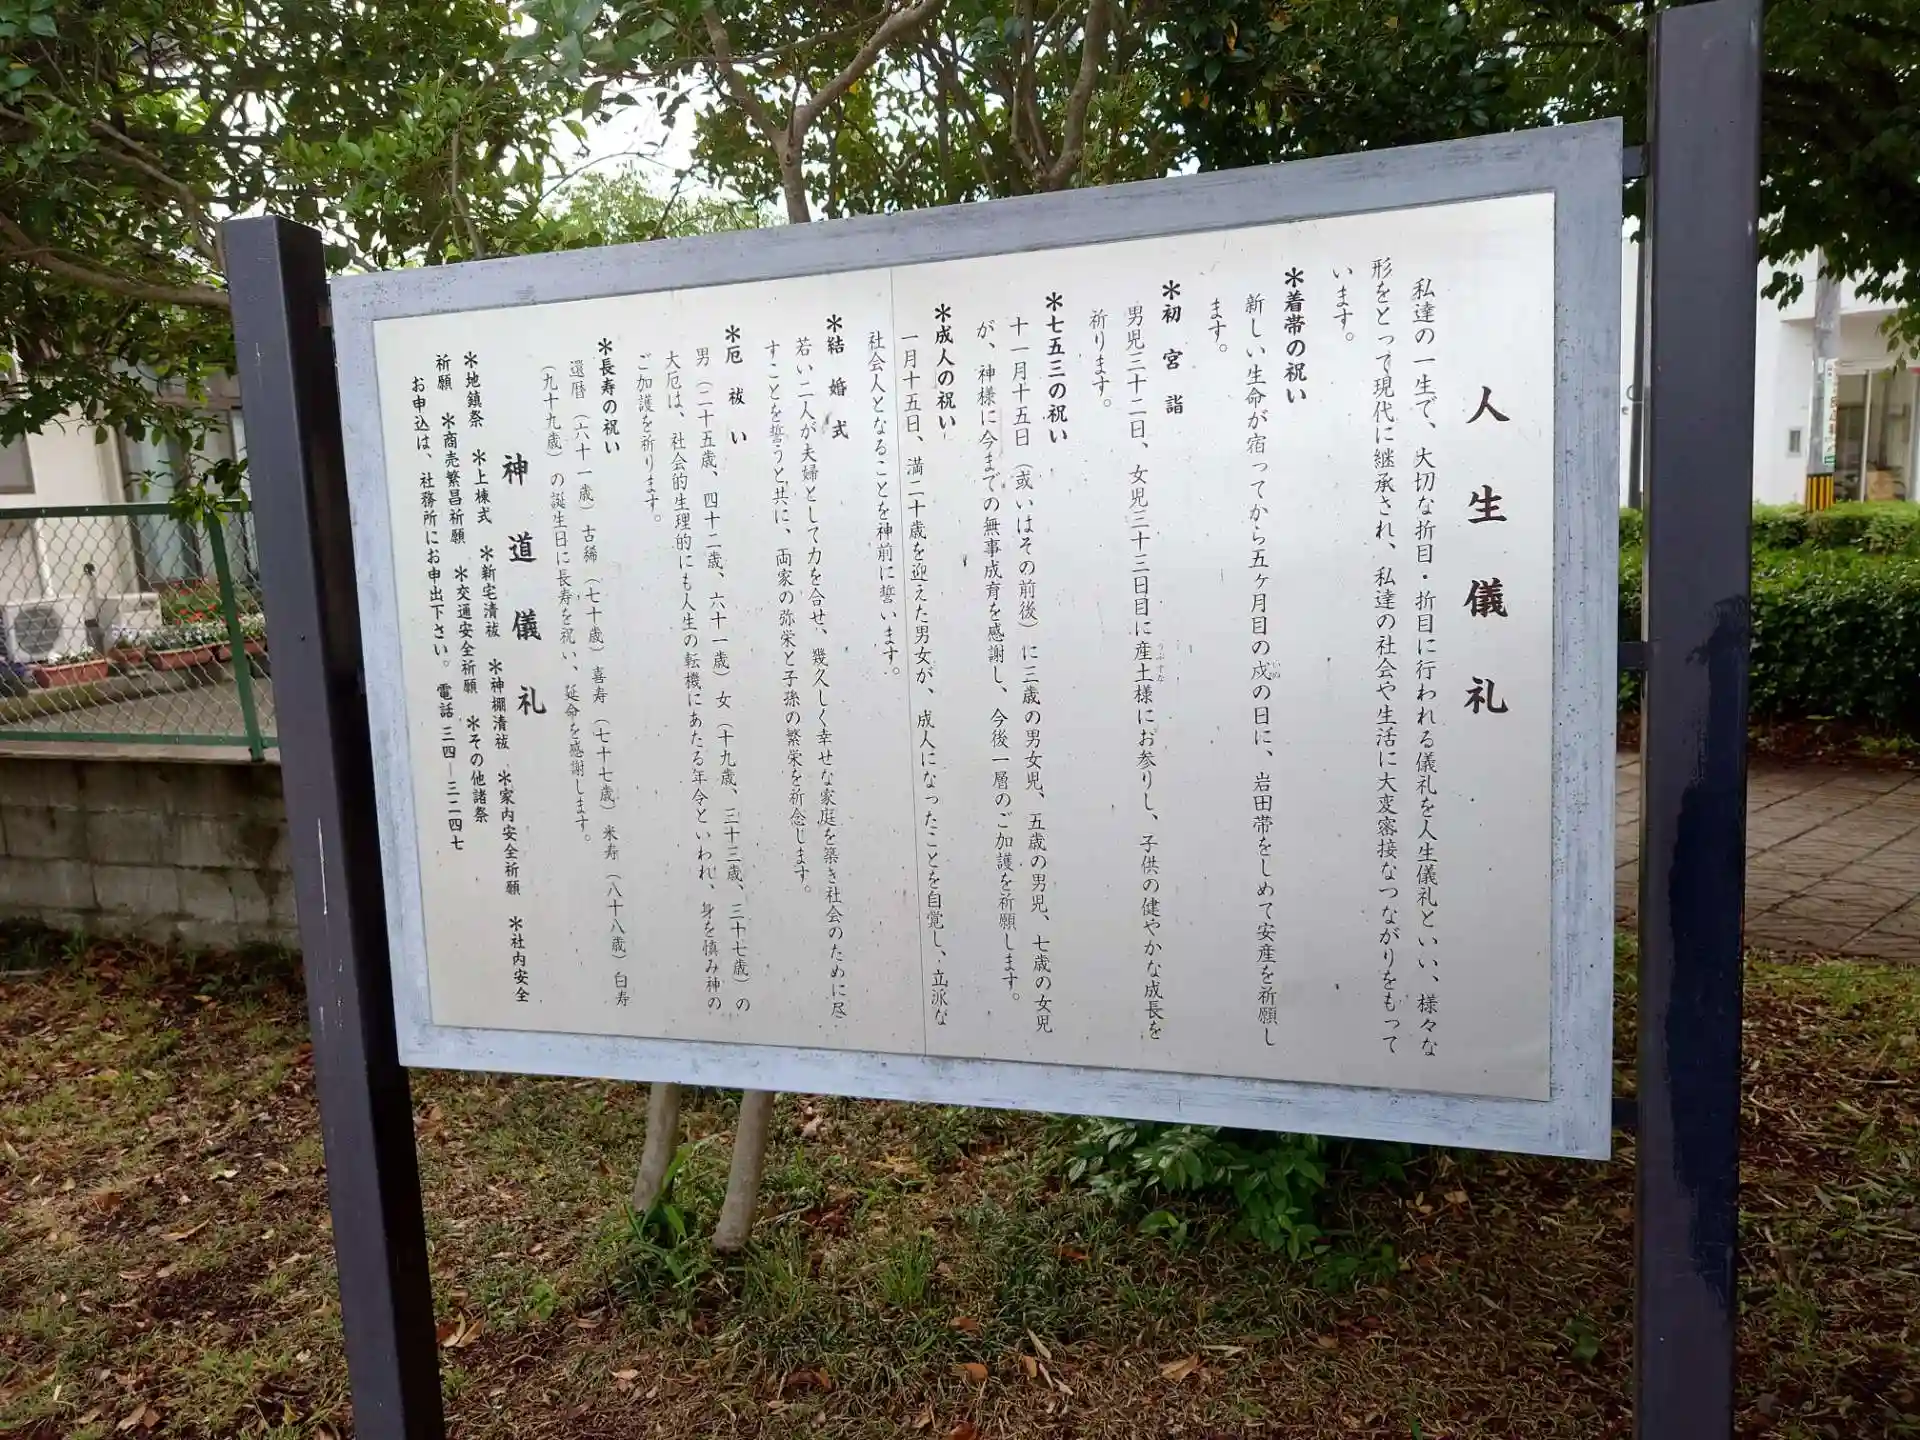 人生儀礼
私達の一生で、大切な折目・折目に行われる儀礼を人生儀礼といい、様々な
形をとって現代に継承され、私達の社会や生活に大変密接なつながりをもって
います。
＊着帯の祝い
新しい生命が宿ってから五ヶ月目の戌の日に、岩田帯をしめて安産を祈願し
いぬ
ます。
＊初宮詣
男児三十二日、女児三十三日目に産土様にお参りし、子供の健やかな成長を
うぶすな
祈ります。
＊七五三の祝い
十一月十五日（或いはその前後）に三歳の男女児、五歳の男児、七歳の女児
が、神様に今までの無事成育を感謝し、今後一層のご加護を祈願します。
＊成人の祝い
一月十五日、満二十歳を迎えた男女が、成人になったことを自覚し、立派な
社会人となることを神前に誓います。
＊結婚式
若い二人が夫婦として力を合せ、幾久しく幸せな家庭を築き社会のために尽
すことを誓うと共に、両家の弥栄と子孫の繁栄を祈念します。
＊厄祓い
男（二十五歳、四十二歳、六十一歳）女（十九歳、三十三歳、三十七歳）の
大厄は、社会的生理的にも人生の転機にあたる年令といわれ、身を慎み神の
ご加護を祈ります。
＊長寿の祝い
還暦（六十一歳）古稀（七十歳）喜寿（七十七歳）米寿（八十八歳）白寿
（九十九歳）の誕生日に長寿を祝い、延命を感謝します。
神道儀礼
＊地鎮祭 ＊上棟式 ＊新宅清祓 ＊神棚清祓 ＊家内安全祈願 ＊社内安全
祈願 ＊商売繁昌祈願 ＊交通安全祈願 ＊その他諸祭
お申込は、社務所にお申出下さい。電話三四―三二四七